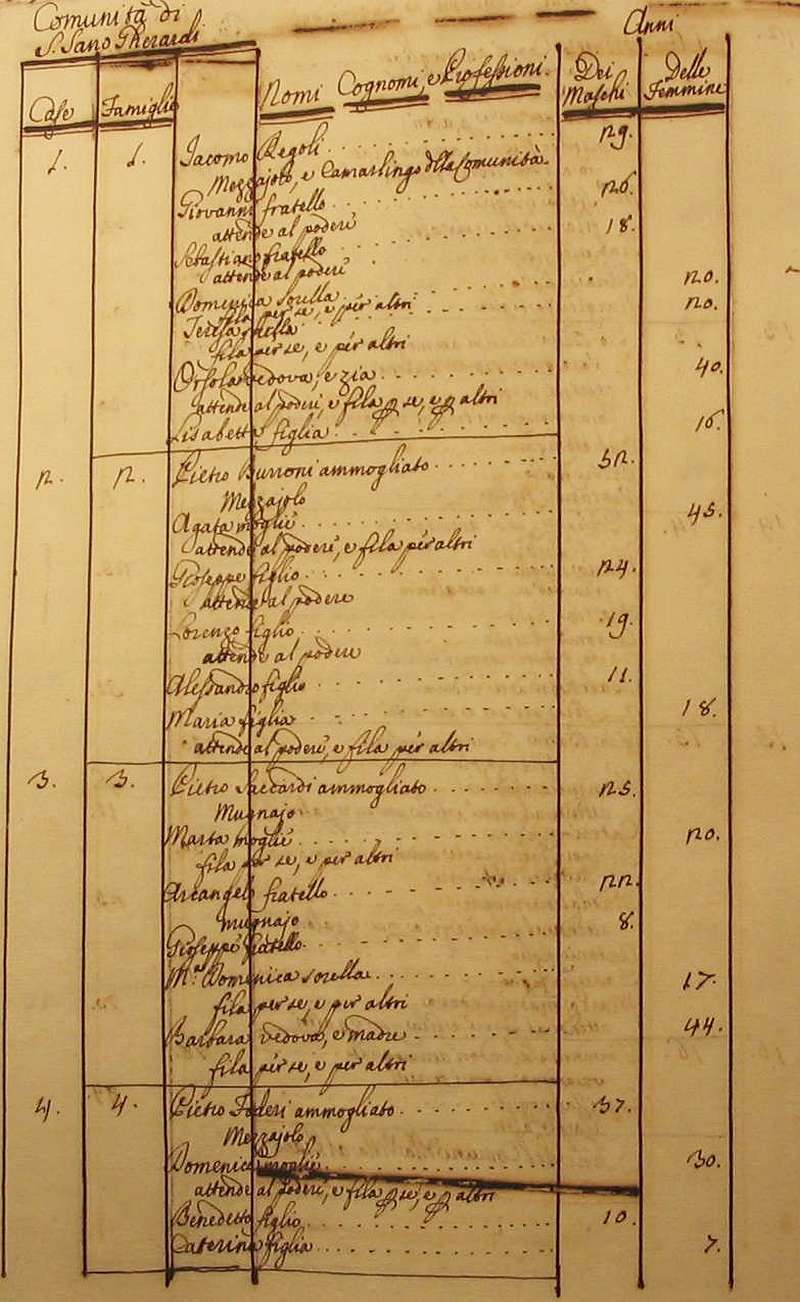 Comunità di
S. Sano Gherardi
Anni
Case Famiglie Nomi Cognomi, e Professioni. Dei Maschi Delle Femmine
1. 1. Iacomo Regoli 29.
Mezzajolo, e Camarlingo della Comunità
Giovanni fratello 26.
attende al podere
Sebastiano fratello 18.
attende al podere
Domenica Sorella 20.
fila per se, e per altri
Teresa sorella 20.
fila per se, e per altri
Orsola vedova, e zia 40.
attende al podere, e fila p se, e p altri
Lisabetta figlia 16.
2. 2. Pietro Burroni ammogliato 52.
Mezzajolo
Agata moglie 45.
attende al podere, e fila per altri
Gioseppe figlio 24.
attende al podere
Lorenzo figlio 19.
attende al podere
Alessandro figlio 11.
Maria figlia 18.
attende al podere, e fila per altri
3. 3. Pietro Saccardi ammogliato 25.
Mugnajo
Marta moglie 20.
fila per se, e per altri
Arcangelo fratello 22.
Mugnajo
Gioseppe fratello 8.
M.ª Domenica sorella 17.
fila per se, e per altri
Barbara vedova, e madre 44.
fila per se, e per altri
4. 4. Pietro Federi ammogliato 37.
Mezzajolo
Domenica moglie 30.
attende al podere, e fila p se, e p altri
Benedetto figlio 10.
Caterina figlia 7.